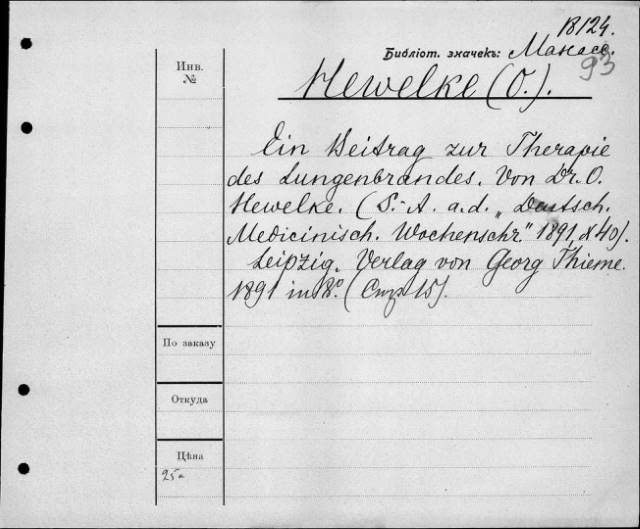 18124.
Библіот. значекъ: Манасс.
93
Инв. №
Hewelke (O.).
Ein Beitrag zur Therapie
des Lungenbrandes. Von Dr. O.
Hewelke. (S.-A. a. d. „Deutsch.
Medicinisch. Wochenschr." 1891, № 40).
Leipzig. Verlag von Georg Thieme.
1891 in 8°. (Стр. 15).
По заказу
Откуда
Цѣна
25